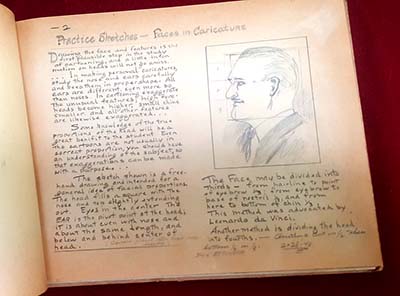 —2
Practice Sketches — Faces in Caricature
Drawing the face and features is the
first plausible step in the study
of cartooning, and a little infor-
mation on heads will not go amiss.
In making personal caricatures,
study the nose and ears carefully
and keep them in proper shape. All
ears are different, even more so
than noses. In cartooning exaggerate
the unusual features; high fore-
heads become higher, small chins
smaller and all other features
are likewise exaggerated...
Some knowledge of the true
proportions of the head will be a
great benefit to the student. Even
tho cartoons are not usually in
correct proportion, you should have
an understanding of the subject, so
that exaggeration can be made
with a purpose.
The sketch shown is a free-
hand drawing and intended for a
general idea of facial proportions.
The head fills a square with the
nose and top slightly extending
out. Eyes in the center. The
EAR is the pivot point of the head;
it is about even with nose and
about the same length, and
below and behind center of
head.
The Face may be divided into
thirds — from hairline to point
of eyebrow ⅓, from eyebrow to
base of nostril ⅓, and from
here to bottom of chin ⅓.
This method was advocated by
Leonardo da Vinci.
Another method is dividing the head
into fourths.—